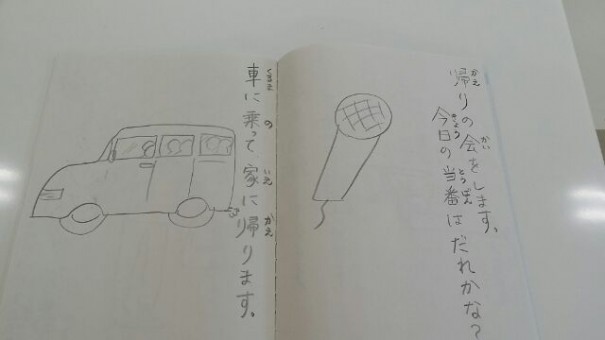 帰りの会をします。
今日の当番はだれかな？
車に乗って家に帰ります。